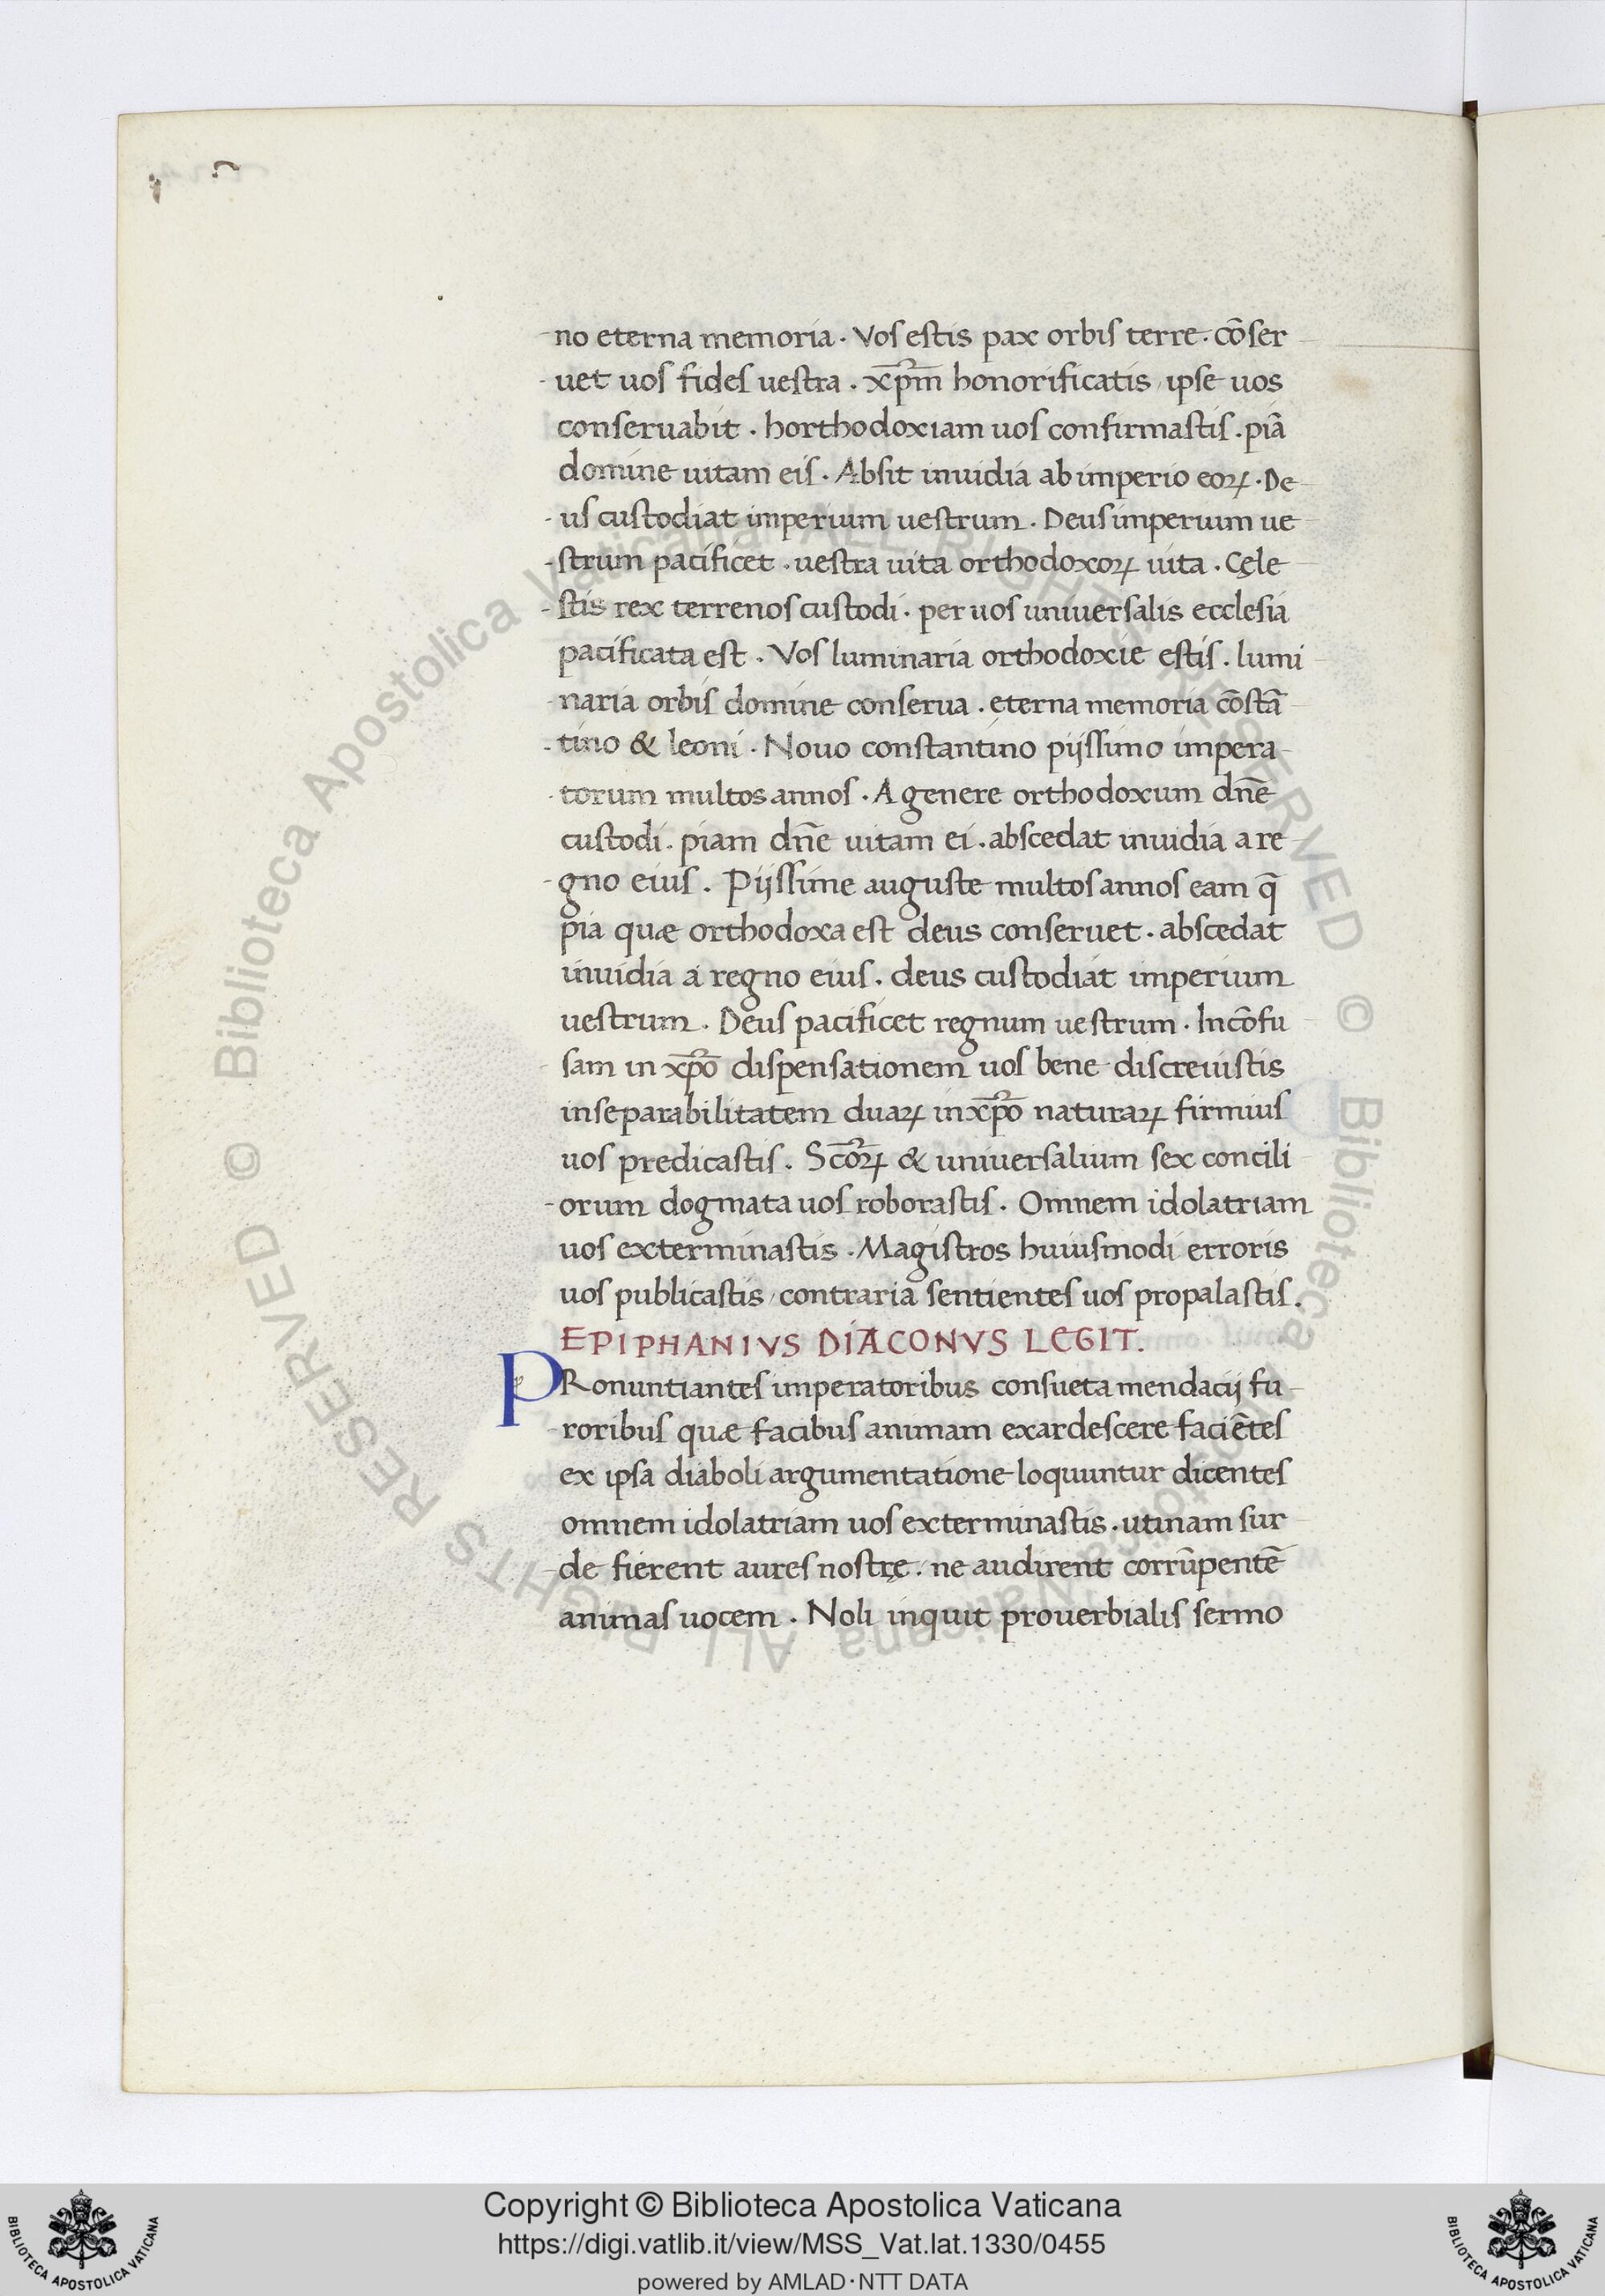 no eterna memoria · Vos estis pax orbis terre · cōser
uet uos fides uestra · xp̄m honorificatis, ipse uos
conseruabit · horthodoxiam uos confirmastis · piā
domine uitam eis · Absit inuidia ab imperio eoꝝ · De
us custodiat imperium uestrum · Deus imperium ue
strum pacificet · uestra uita orthodoxoꝝ uita · Cęle
stis rex terrenos custodi · per uos uniuersalis ecclesia
pacificata est · Vos luminaria orthodoxie estis · lumi
naria orbis domine conserua · ęterna memoria cōstā
tino & leoni · Nouo constantino pijssimo impera
torum multos annos · A genere orthodoxum dn̄e
custodi · piam dn̄e uitam ei · abscedat inuidia a re
gno eius · Pijssime auguste multos annos eam q̄
pia quæ orthodoxa est deus conseruet · abscedat
inuidia a regno eius · deus custodiat imperium
uestrum · Deus pacificet regnum uestrum · Incōfu
sam in xp̄o dispensationem uos bene discreuistis
inseparabilitatem duaꝝ in xp̄o naturaꝝ firmius
uos predicastis · Sc̄oꝝ & uniuersalium sex concili
orum dogmata uos roborastis · Omnem idolatriam
uos exterminastis · Magistros huiusmodi erroris
uos publicastis, contraria sentientes uos propalastis.
EPIPHANIVS DIACONVS LEGIT.
PRonuntiantes imperatoribus consueta mendacij fu
roribus quæ facibus animam exardescere faciētes
ex ipsa diaboli argumentatione loquuntur dicentes
omnem idolatriam uos exterminastis · utinam sur
de fierent aures nostrę · ne audirent corrūpentē
animas uocem · Noli inquit prouerbialis sermo
© Biblioteca Apostolica Vaticana ALL RIGHTS RESERVED © Biblioteca Apostolica Vaticana ALL RIGHTS RESERVED
BIBLIOTECA APOSTOLICA VATICANA
Copyright © Biblioteca Apostolica Vaticana
https://digi.vatlib.it/view/MSS_Vat.lat.1330/0455
powered by AMLAD·NTT DATA
BIBLIOTECA APOSTOLICA VATICANA